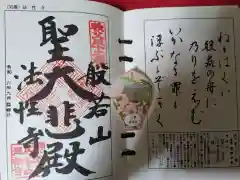 ねかはくは
般若の舟に
のりをえむ
いかなる罪も
浮ぶとそきく
般若山
聖大悲殿
法性寺